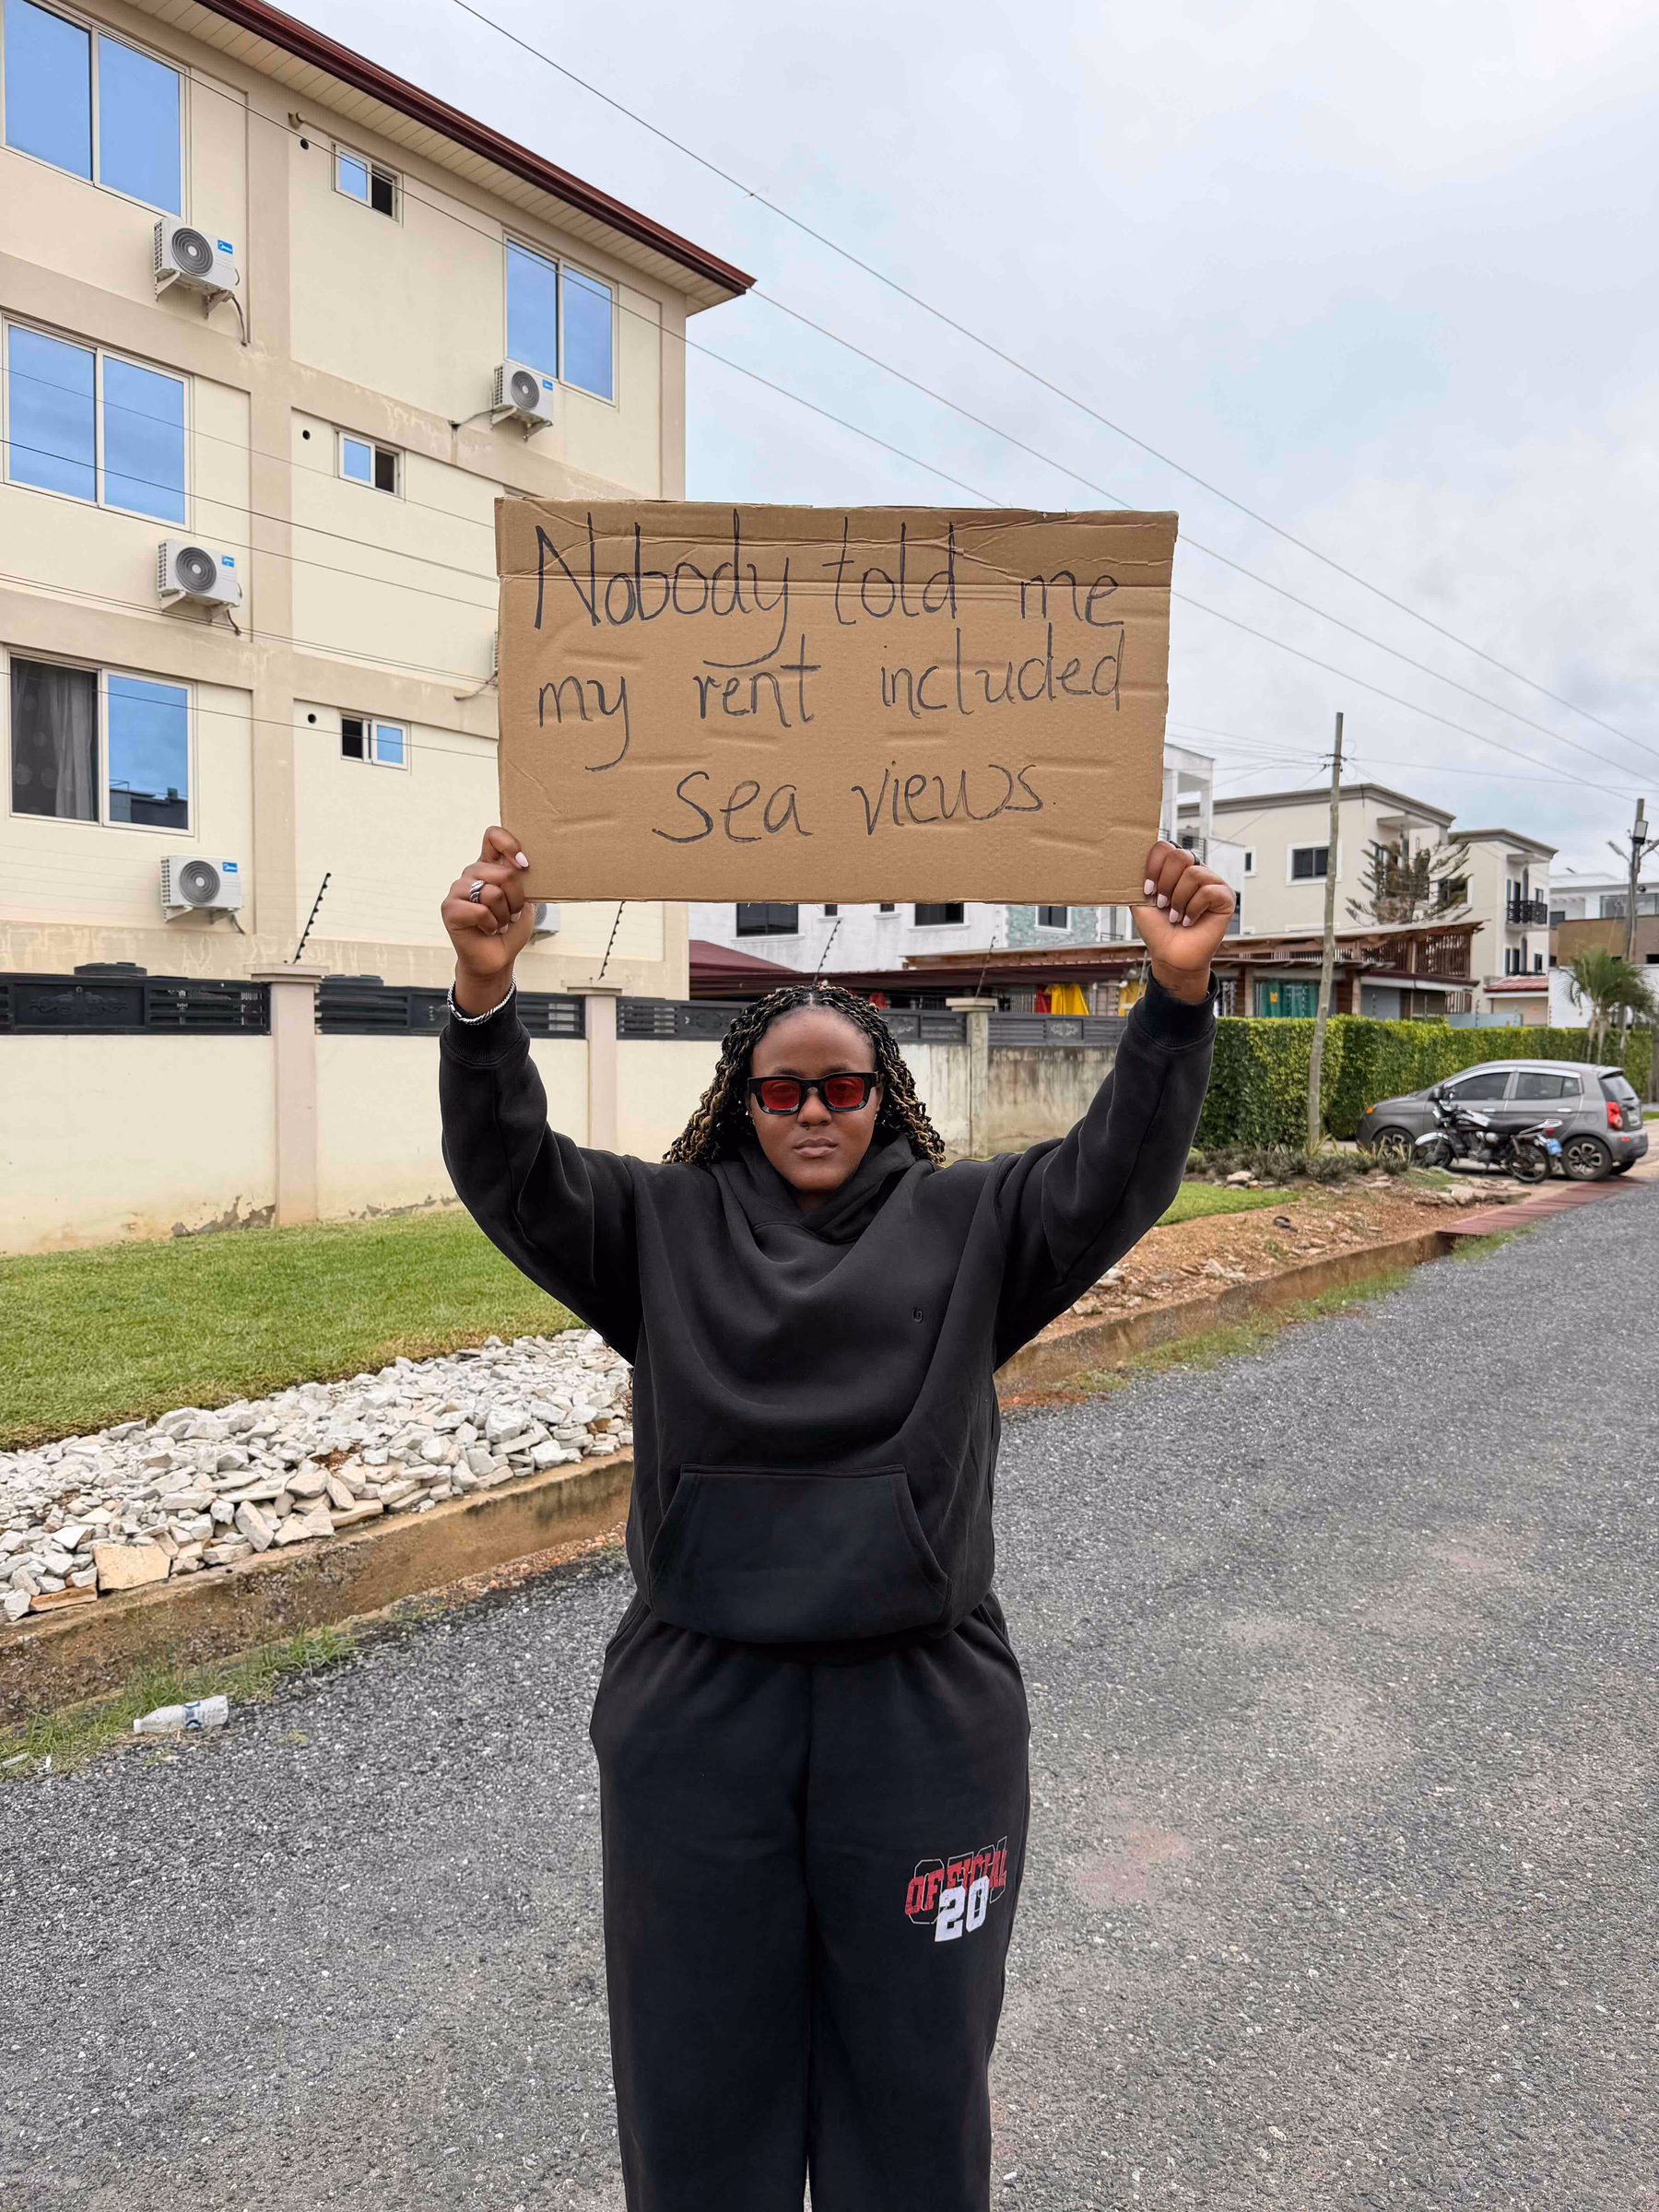 Nobody told me
my rent included
Sea views.
OFFICIAL
20